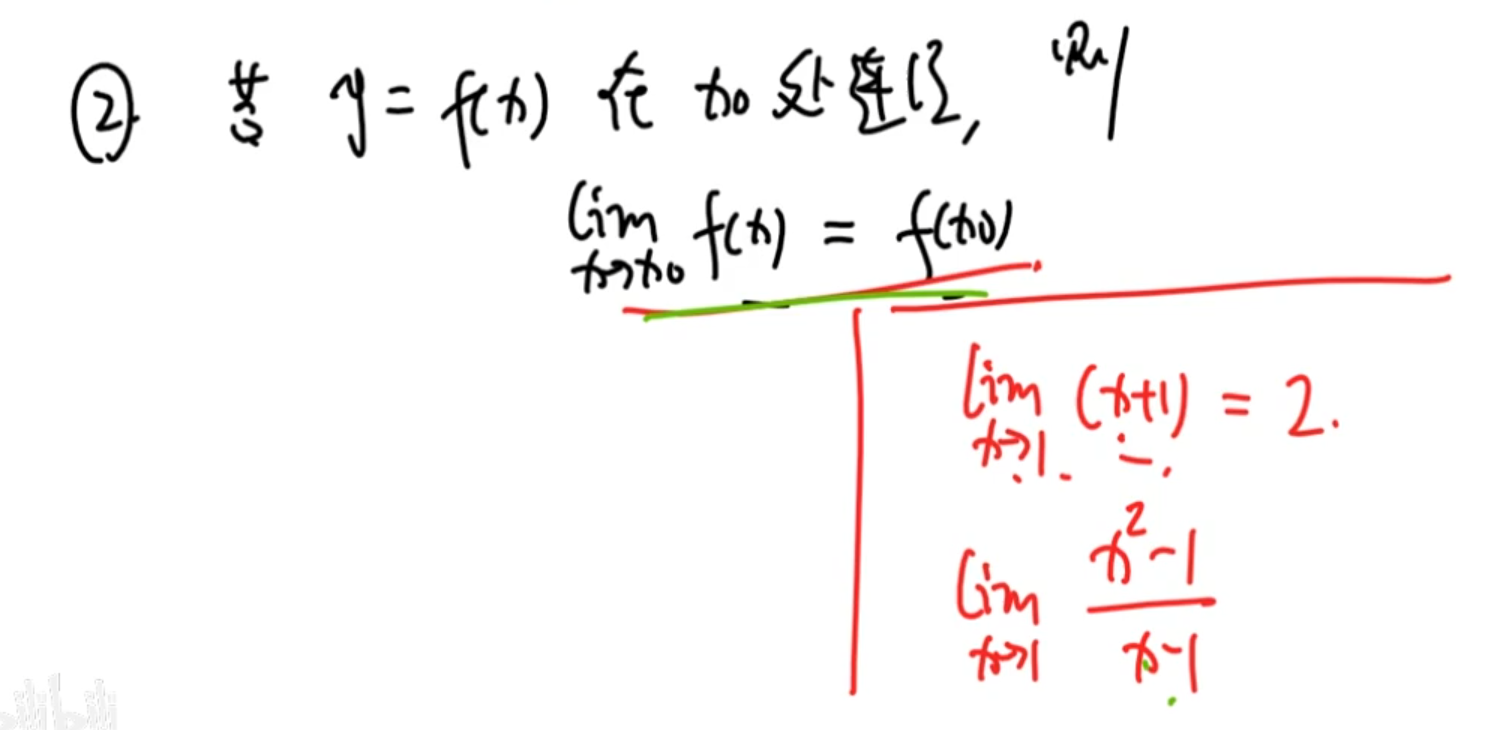 ② 若 y = f(x) 在 x₀ 处连续, 则
lim f(x) = f(x₀)
x→x₀
lim (x+1) = 2.
x→1
lim (x²-1)/(x-1)
x→1
bilibili